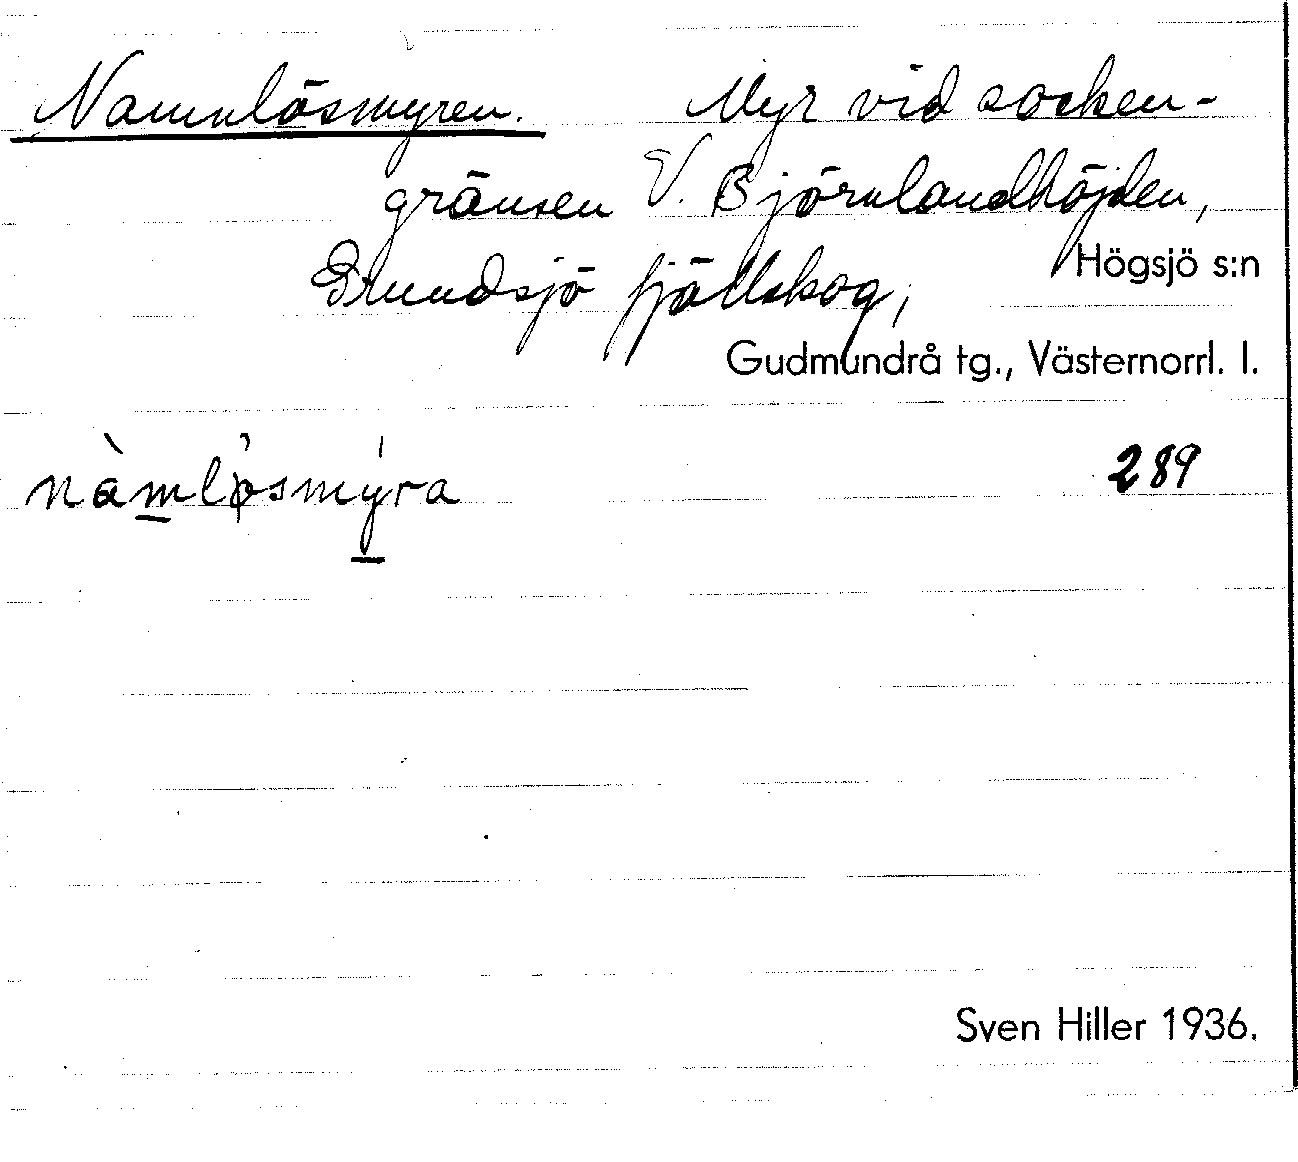 Namnlösmyren. Myr vid socken-
gränsen V. Björnlandhöjden,
Grundsjö fjällskog,
Högsjö s:n
Gudmundrå tg., Västernorrl. l.
nàmlø̀smýra 289
Sven Hiller 1936.